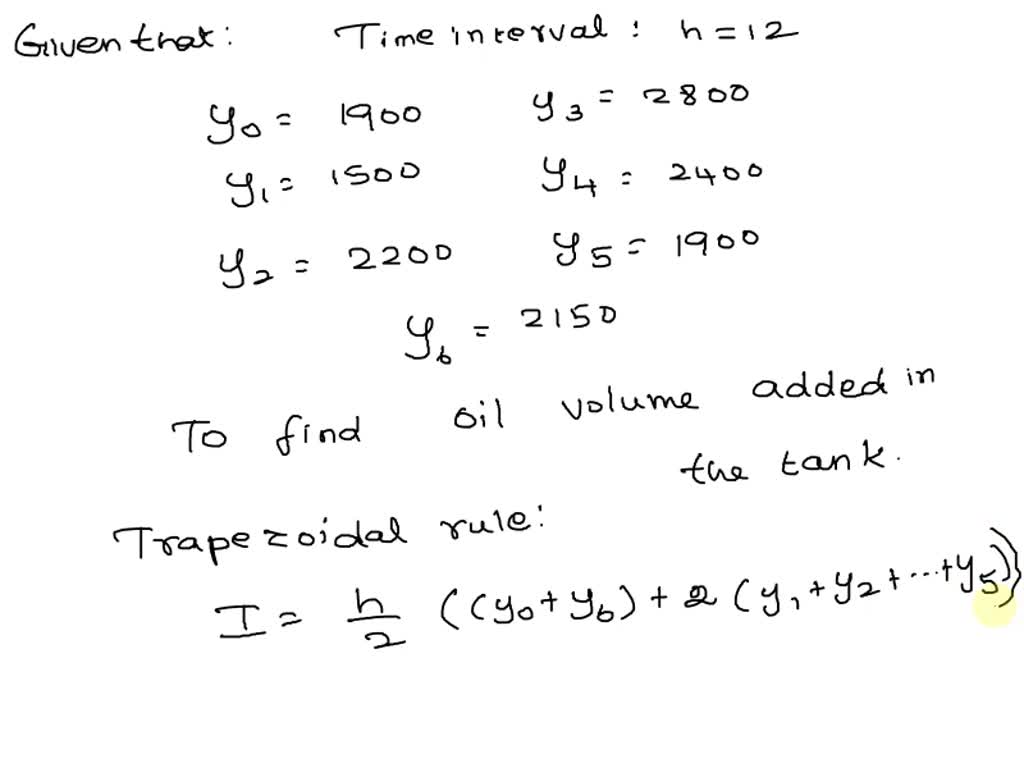 Given that: Time interval: h = 12
y0 = 1900 y3 = 2800
y1 = 1500 y4 = 2400
y2 = 2200 y5 = 1900
y6 = 2150
To find oil volume added in
the tank.
Trapezoidal rule:
I = h/2 ((y0 + y6) + 2 (y1 + y2 + ... + y5)}